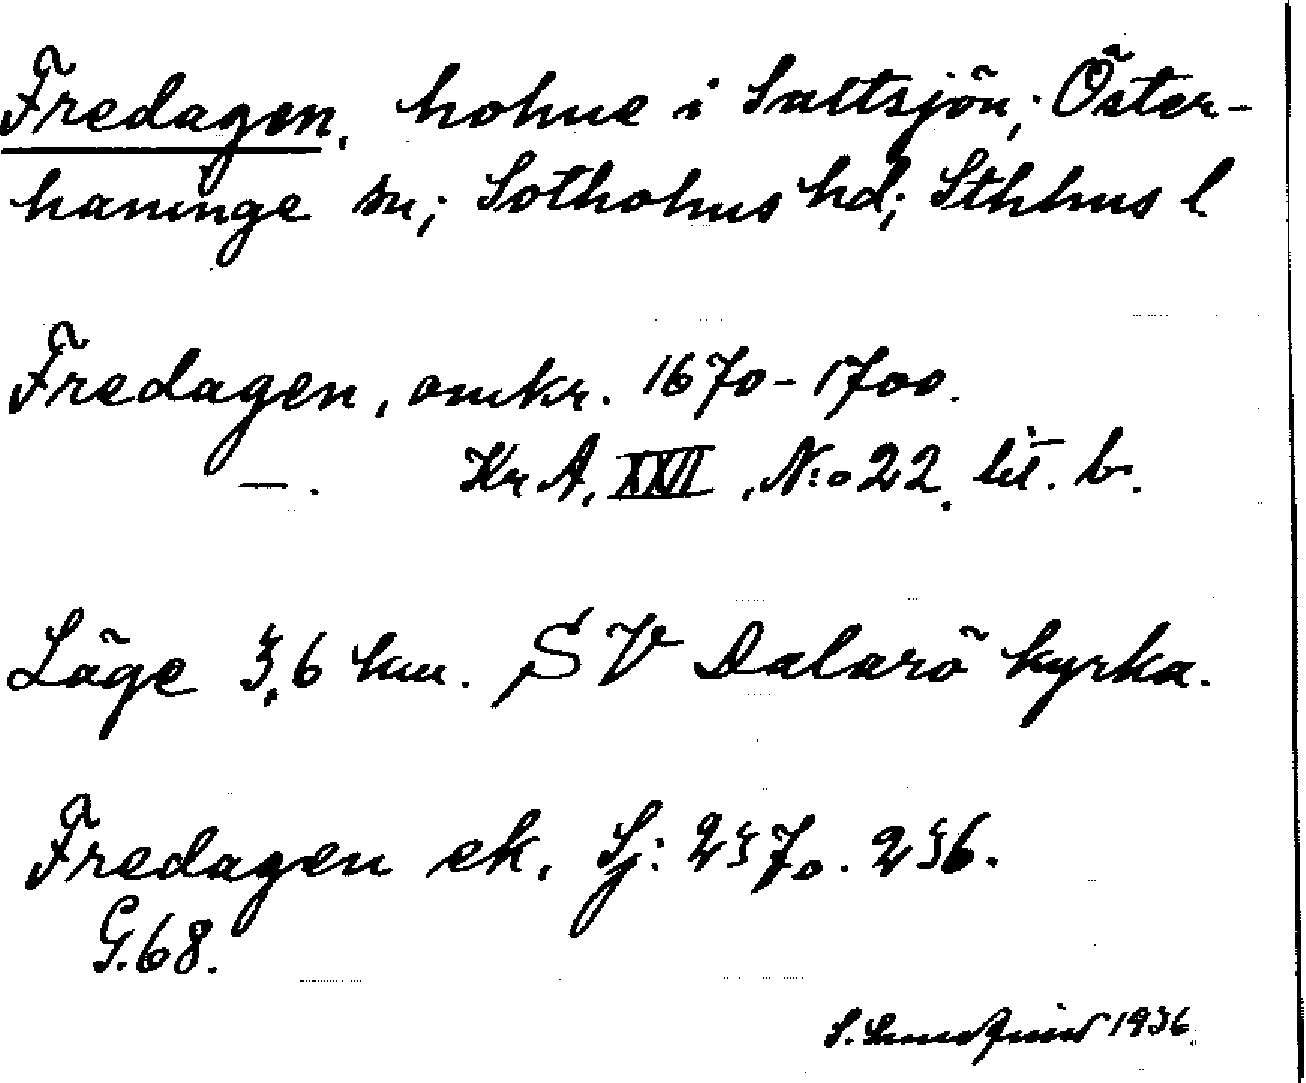 Fredagen, holme i Saltsjön; Öster-
haninge sn; Sotholms hd; Sthlms l
Fredagen, omkr. 1670-1700.
—. Kr A, XXVI, N:o 22, lit. b.
Läge 3,6 km. SV Dalarö kyrka.
Fredagen ek. Sj: 2370. 236.
G. 68.
S. 1936